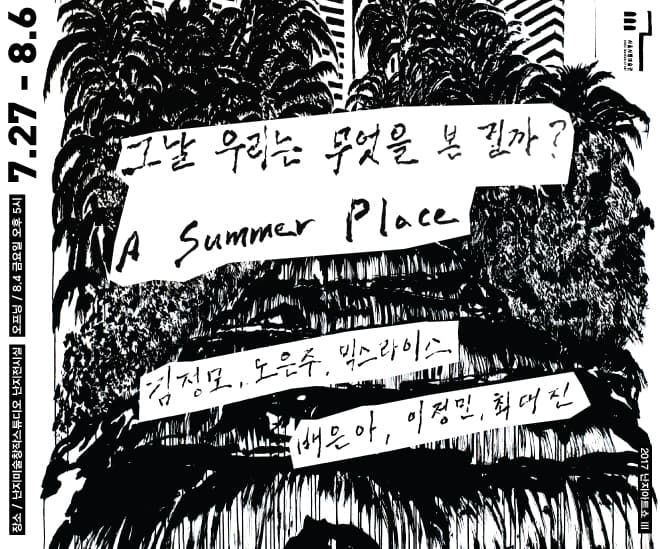 7.27 - 8.6
오프닝 / 8.4 금요일 오후 5시
장소 / 난지미술창작스튜디오 난지전시실
그날 우리는 무엇을 본 걸까?
A Summer Place
김정모, 노은주, 빅스라이스
배은아, 이정민, 최대진
2017 난지아트쇼 III